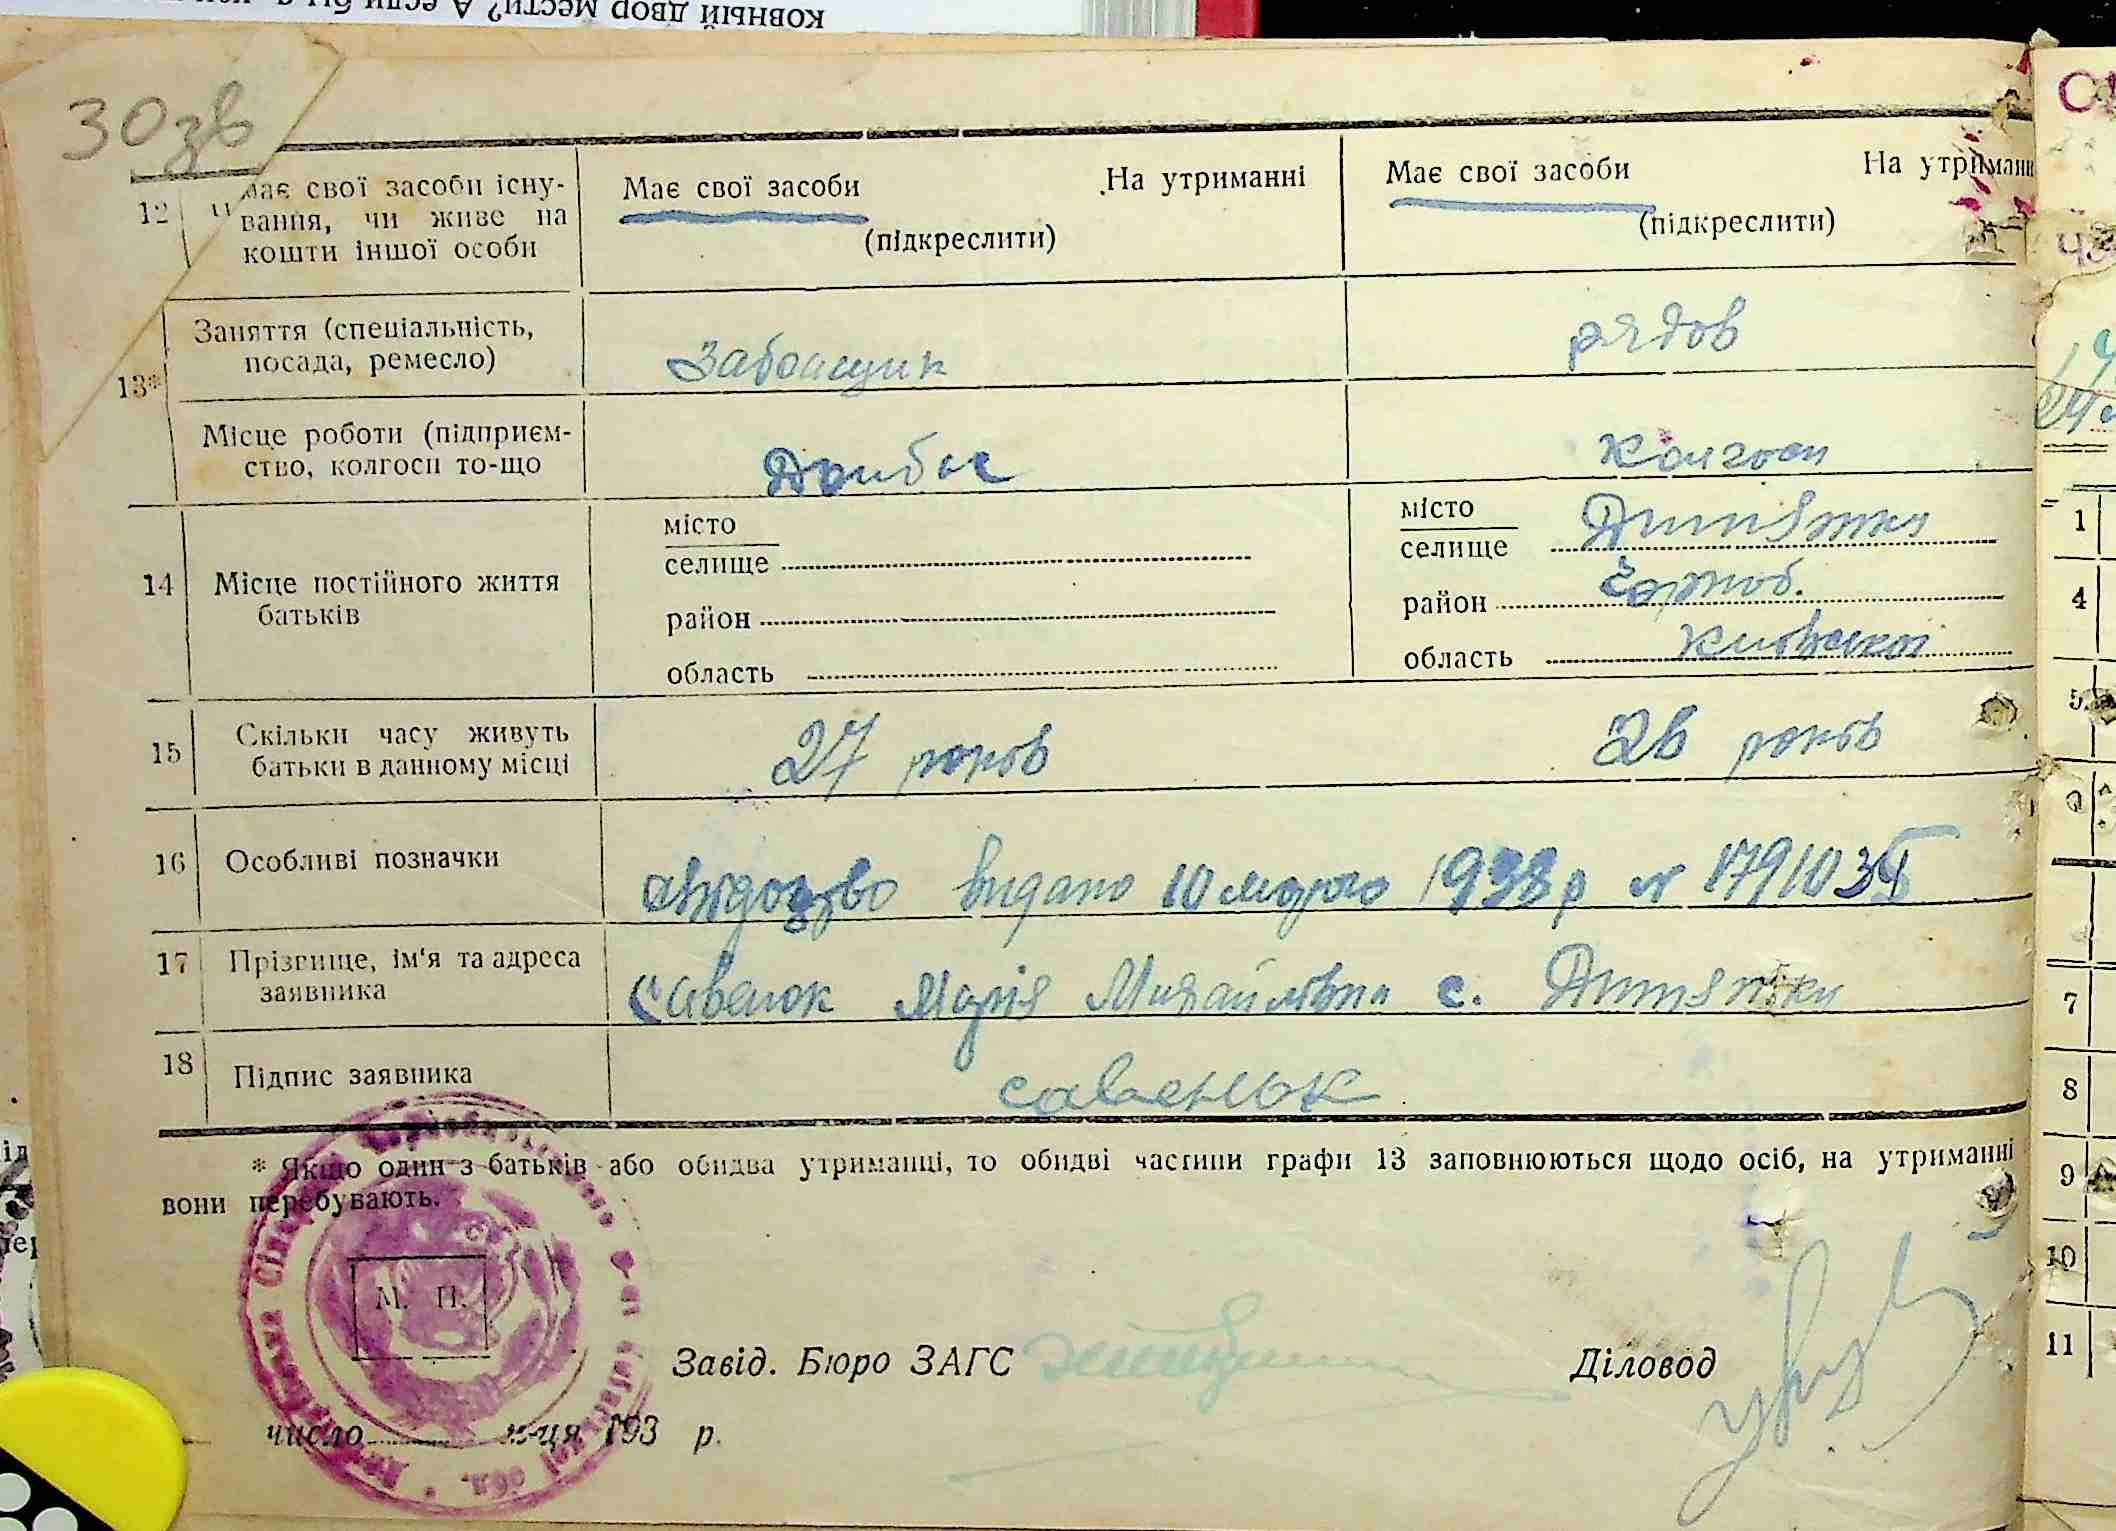 ковный двор мести? А если бы я
30зв
12 має свої засоби існу- Має свої засоби На утриманні Має свої засоби На утриманн
вання, чи живе на
кошти іншої особи (підкреслити) (підкреслити)
13* Заняття (спеціальність,
посада, ремесло) Забоащик рядов
Місце роботи (підприєм-
ство, колгосп то-що Донбас Колгосп
14 Місце постійного життя
батьків
місто
селище
район
область
місто
селище Дитятки
район Чорноб.
область Київської
15 Скільки часу живуть
батьки в данному місці 27 років 26 років
16 Особливі позначки свідоцтво видано 10 марта 1938 р №
17 Прізвище, ім'я та адреса
заявника Савенок Марія Михайлівна с. Дитятки
18 Підпис заявника савенок
* Якщо один з батьків або обидва утриманці, то обидві частини графи 13 заповнюються щодо осіб, на утриманні
вони перебувають.
М. П.
Завід. Бюро ЗАГС Діловод
число м-ця 193 р.
1
4
5
7
8
9
10
11